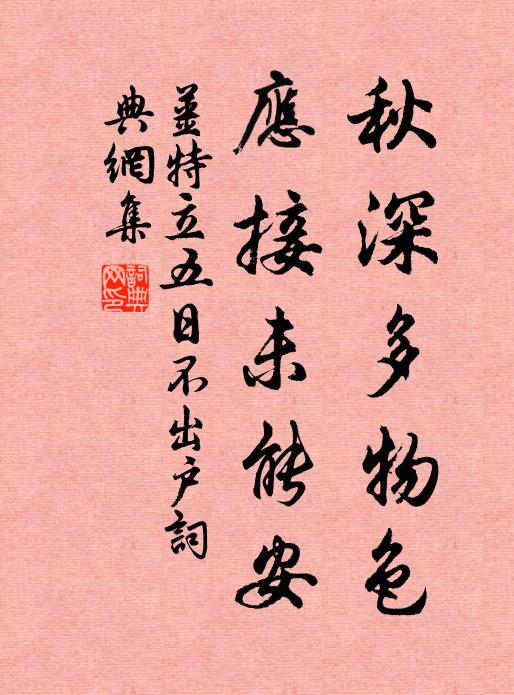 秋深多物色
應接未能安
姜特立五日不出戶詞
典網集
詞典網印